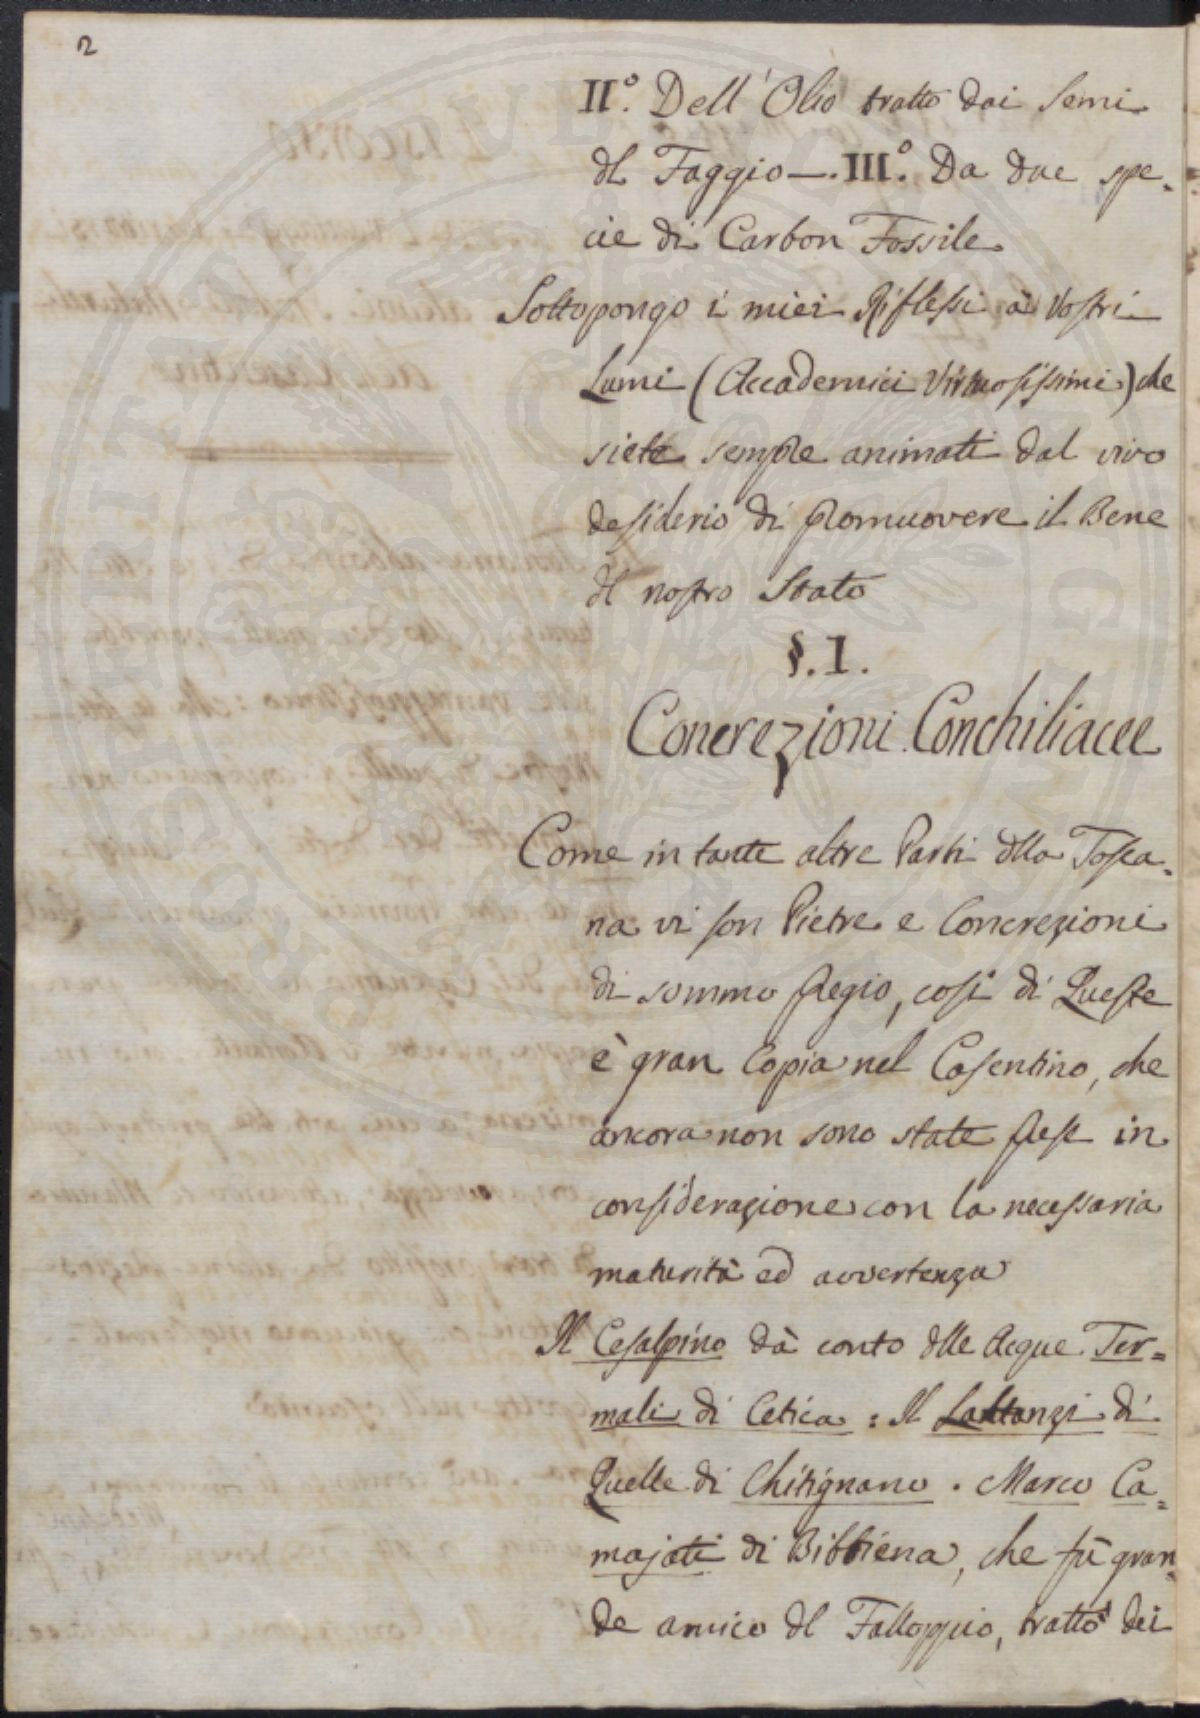 2
II.º Dell'Olio tratto dai Semi
dl Faggio —. III.º Da due spe-
cie di Carbon Fossile
Sottopongo i miei Riflessi à Vostri
Lumi (Accademici Virtuosissimi) che
siete sempre animati dal vivo
desiderio di promuovere il Bene
dl nostro Stato
§. I.
Concrezioni Conchiliacee
Come in tante altre Parti dlla Tosca-
na vi son Pietre e Concrezioni
di sommo pregio, così di Queste
è gran Copia nel Casentino, che
ancora non sono state prese in
considerazione con la necessaria
maturità ed avvertenza
Il Cesalpino dà conto dlle Acque Ter=
mali di Cetica : Il Lattanzi di
Quelle di Chitignano . Marco Ca-
majati di Bibbiena, che fù gran-
de amico dl Falloppio, trattò dei